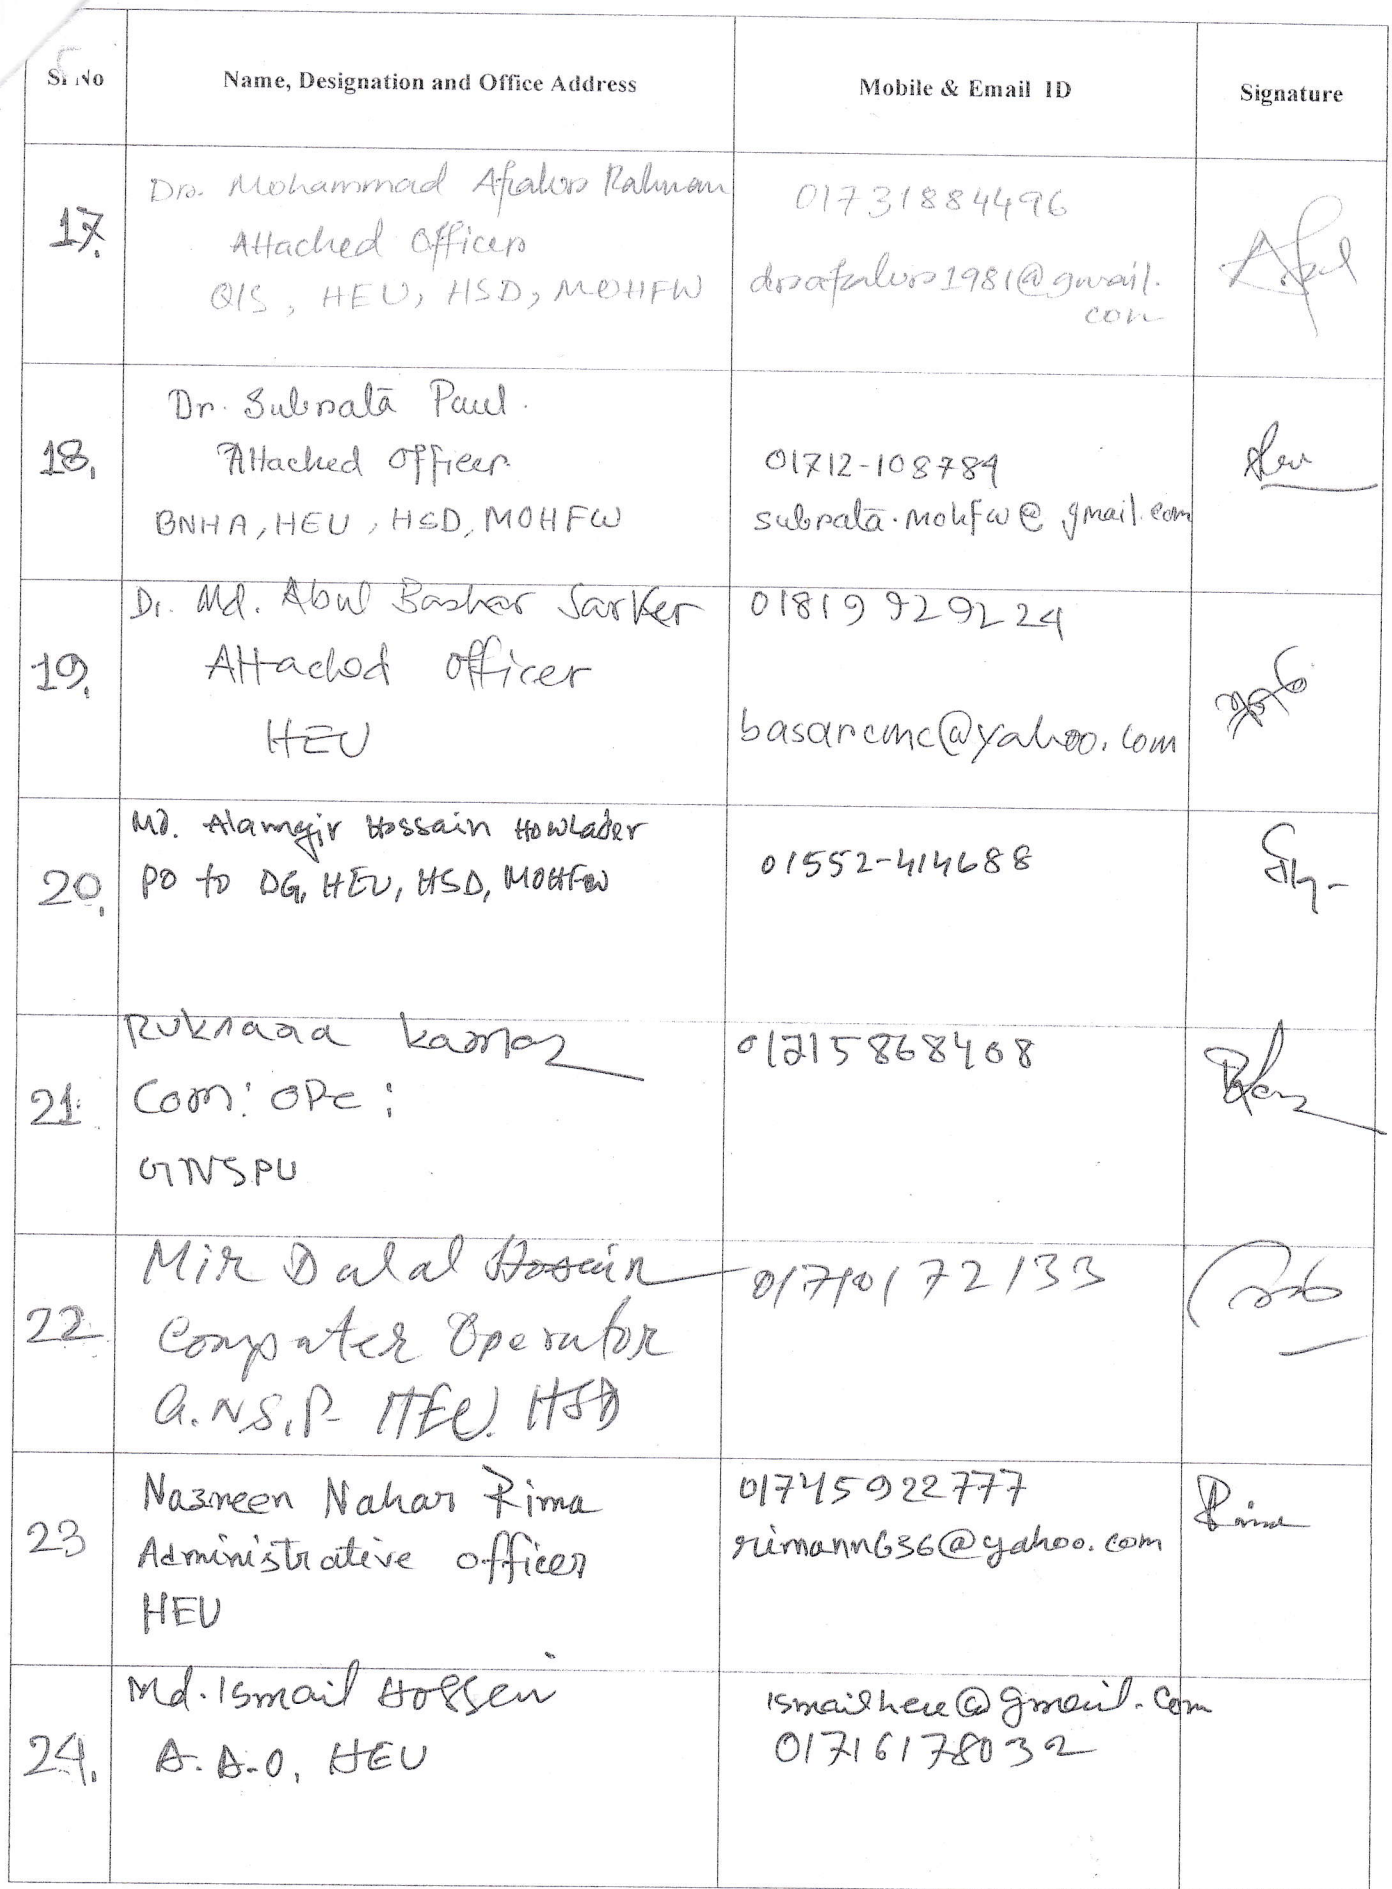 Sl No
Name, Designation and Office Address
Mobile & Email ID
Signature
17.
Dr. Mohammad Afzalur Rahman
Attached Officer
QIS, HEU, HSD, MOHFW
01731884496
drafzalur1981@gmail.
com
18.
Dr. Subrata Paul.
Attached officer
BNHA, HEU, HSD, MOHFW
01712-108784
subrata.mohfw@gmail.com
19.
Dr. Md. Abul Bashar Sarker
Attached officer
HEU
01819 929224
basarcmc@yahoo.com
20.
MD. Alamgir Hossain Howlader
PO to DG, HEU, HSD, MOHFW
01552-414688
21.
Com: OPe:
22
Mir Dalal Hossain
Computer Operator
G.N.S.P HEU. HSD
23
Nazneen Nahar Rima
Administrative officer
HEU
01745922777
rimann636@yahoo.com
Rima
24.
Md. Ismail Hossen
A.A.O, HEU
ismailheu@gmail.com
01716178032